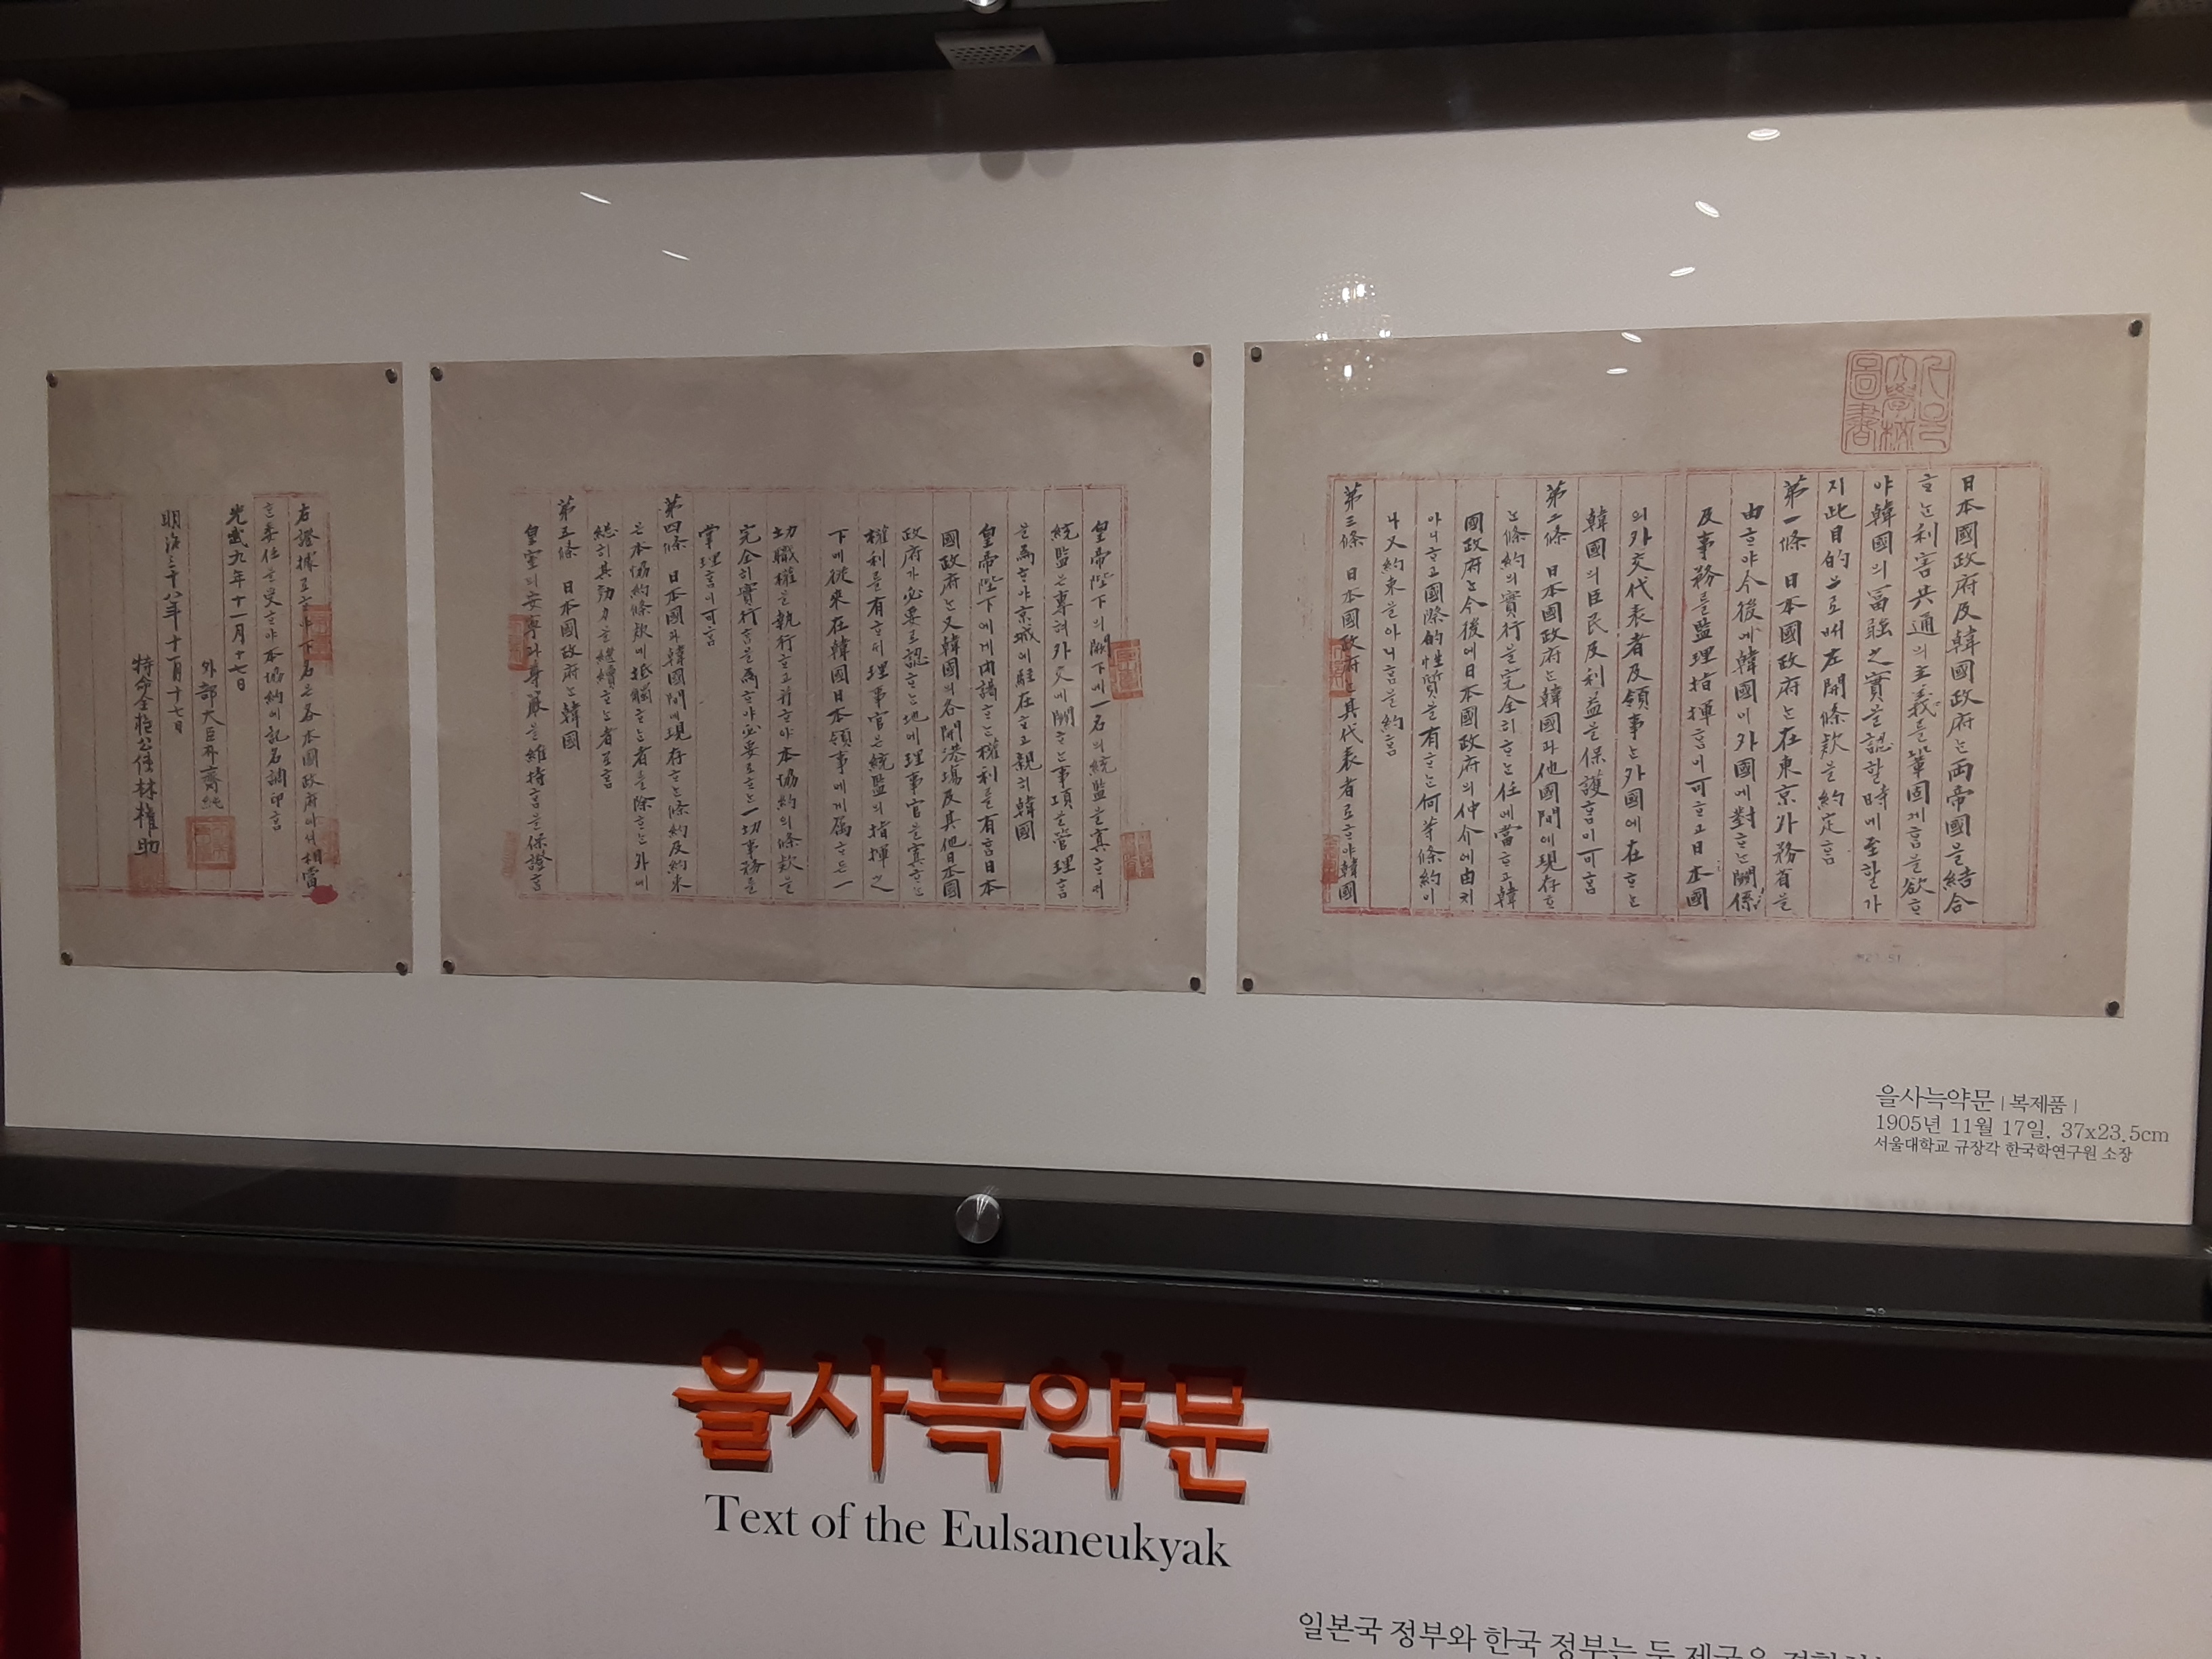 日本國政府及韓國政府는両帝國을結合
ᄒᆞ는利害共通의主義를鞏固케ᄒᆞᆷ을欲ᄒᆞ
야韓國의富强之實을認ᄒᆞᆯ時에至ᄒᆞᆯ가
지此目的으로써左開條款을約定ᄒᆞᆷ
第一條 日本國政府는在東京外務省을
由ᄒᆞ야今後에韓國이外國에對ᄒᆞ는關係
及事務를監理指揮ᄒᆞᆷ이可ᄒᆞ고日本國
의外交代表者及領事는外國에在ᄒᆞ는
韓國의臣民及利益을保護ᄒᆞᆷ이可ᄒᆞᆷ
第二條 日本國政府는韓國과他國間에現存ᄒᆞ
는條約의實行을完全히ᄒᆞ는任에當ᄒᆞ고韓
國政府는今後에日本國政府의仲介에由치
아니ᄒᆞ고國際的性質을有ᄒᆞ는何等條約이
나又約束을아니ᄒᆞᆷ을約ᄒᆞᆷ
第三條 日本國政府는其代表者로ᄒᆞ야韓國
皇帝陛下의闕下에一名의統監을寘ᄒᆞ되
統監은專혀外交에關ᄒᆞ는事項을管理ᄒᆞᆷ
을爲ᄒᆞ야京城에駐在ᄒᆞ고親히韓國
皇帝陛下에게內謁ᄒᆞ는權利를有ᄒᆞᆷ日本
國政府는又韓國의各開港場及其他日本國
政府가必要로認ᄒᆞ는地에理事官을寘ᄒᆞ는
權利를有ᄒᆞ되理事官은統監의指揮之
下에從來在韓國日本領事에게属ᄒᆞ든一
切職權을執行ᄒᆞ고幷ᄒᆞ야本協約의條款을
完全히實行ᄒᆞᆷ을爲ᄒᆞ야必要로ᄒᆞ는一切事務를
掌理ᄒᆞᆷ이可ᄒᆞᆷ
第四條 日本國과韓國間에現存ᄒᆞ는條約及約束
은本協約條款에抵觸ᄒᆞ는者를除ᄒᆞ는外에
總히其効力을繼續ᄒᆞ는者로ᄒᆞᆷ
第五條 日本國政府는韓國
皇室의安寧과尊嚴을維持ᄒᆞᆷ을保證ᄒᆞᆷ
右證據로ᄒᆞ야下名은各本國政府에서相當
ᄒᆞᆫ委任을受ᄒᆞ야本協約에記名調印ᄒᆞᆷ
光武九年十一月十七日
外部大臣朴齊純
明治三十八年十一月十七日
特命全權公使林權助
을사늑약문 | 복제품 |
1905년 11월 17일, 37x23.5cm
서울대학교 규장각 한국학연구원 소장
을사늑약문
Text of the Eulsaneukyak
일본국 정부와 한국 정부는 두 제국을